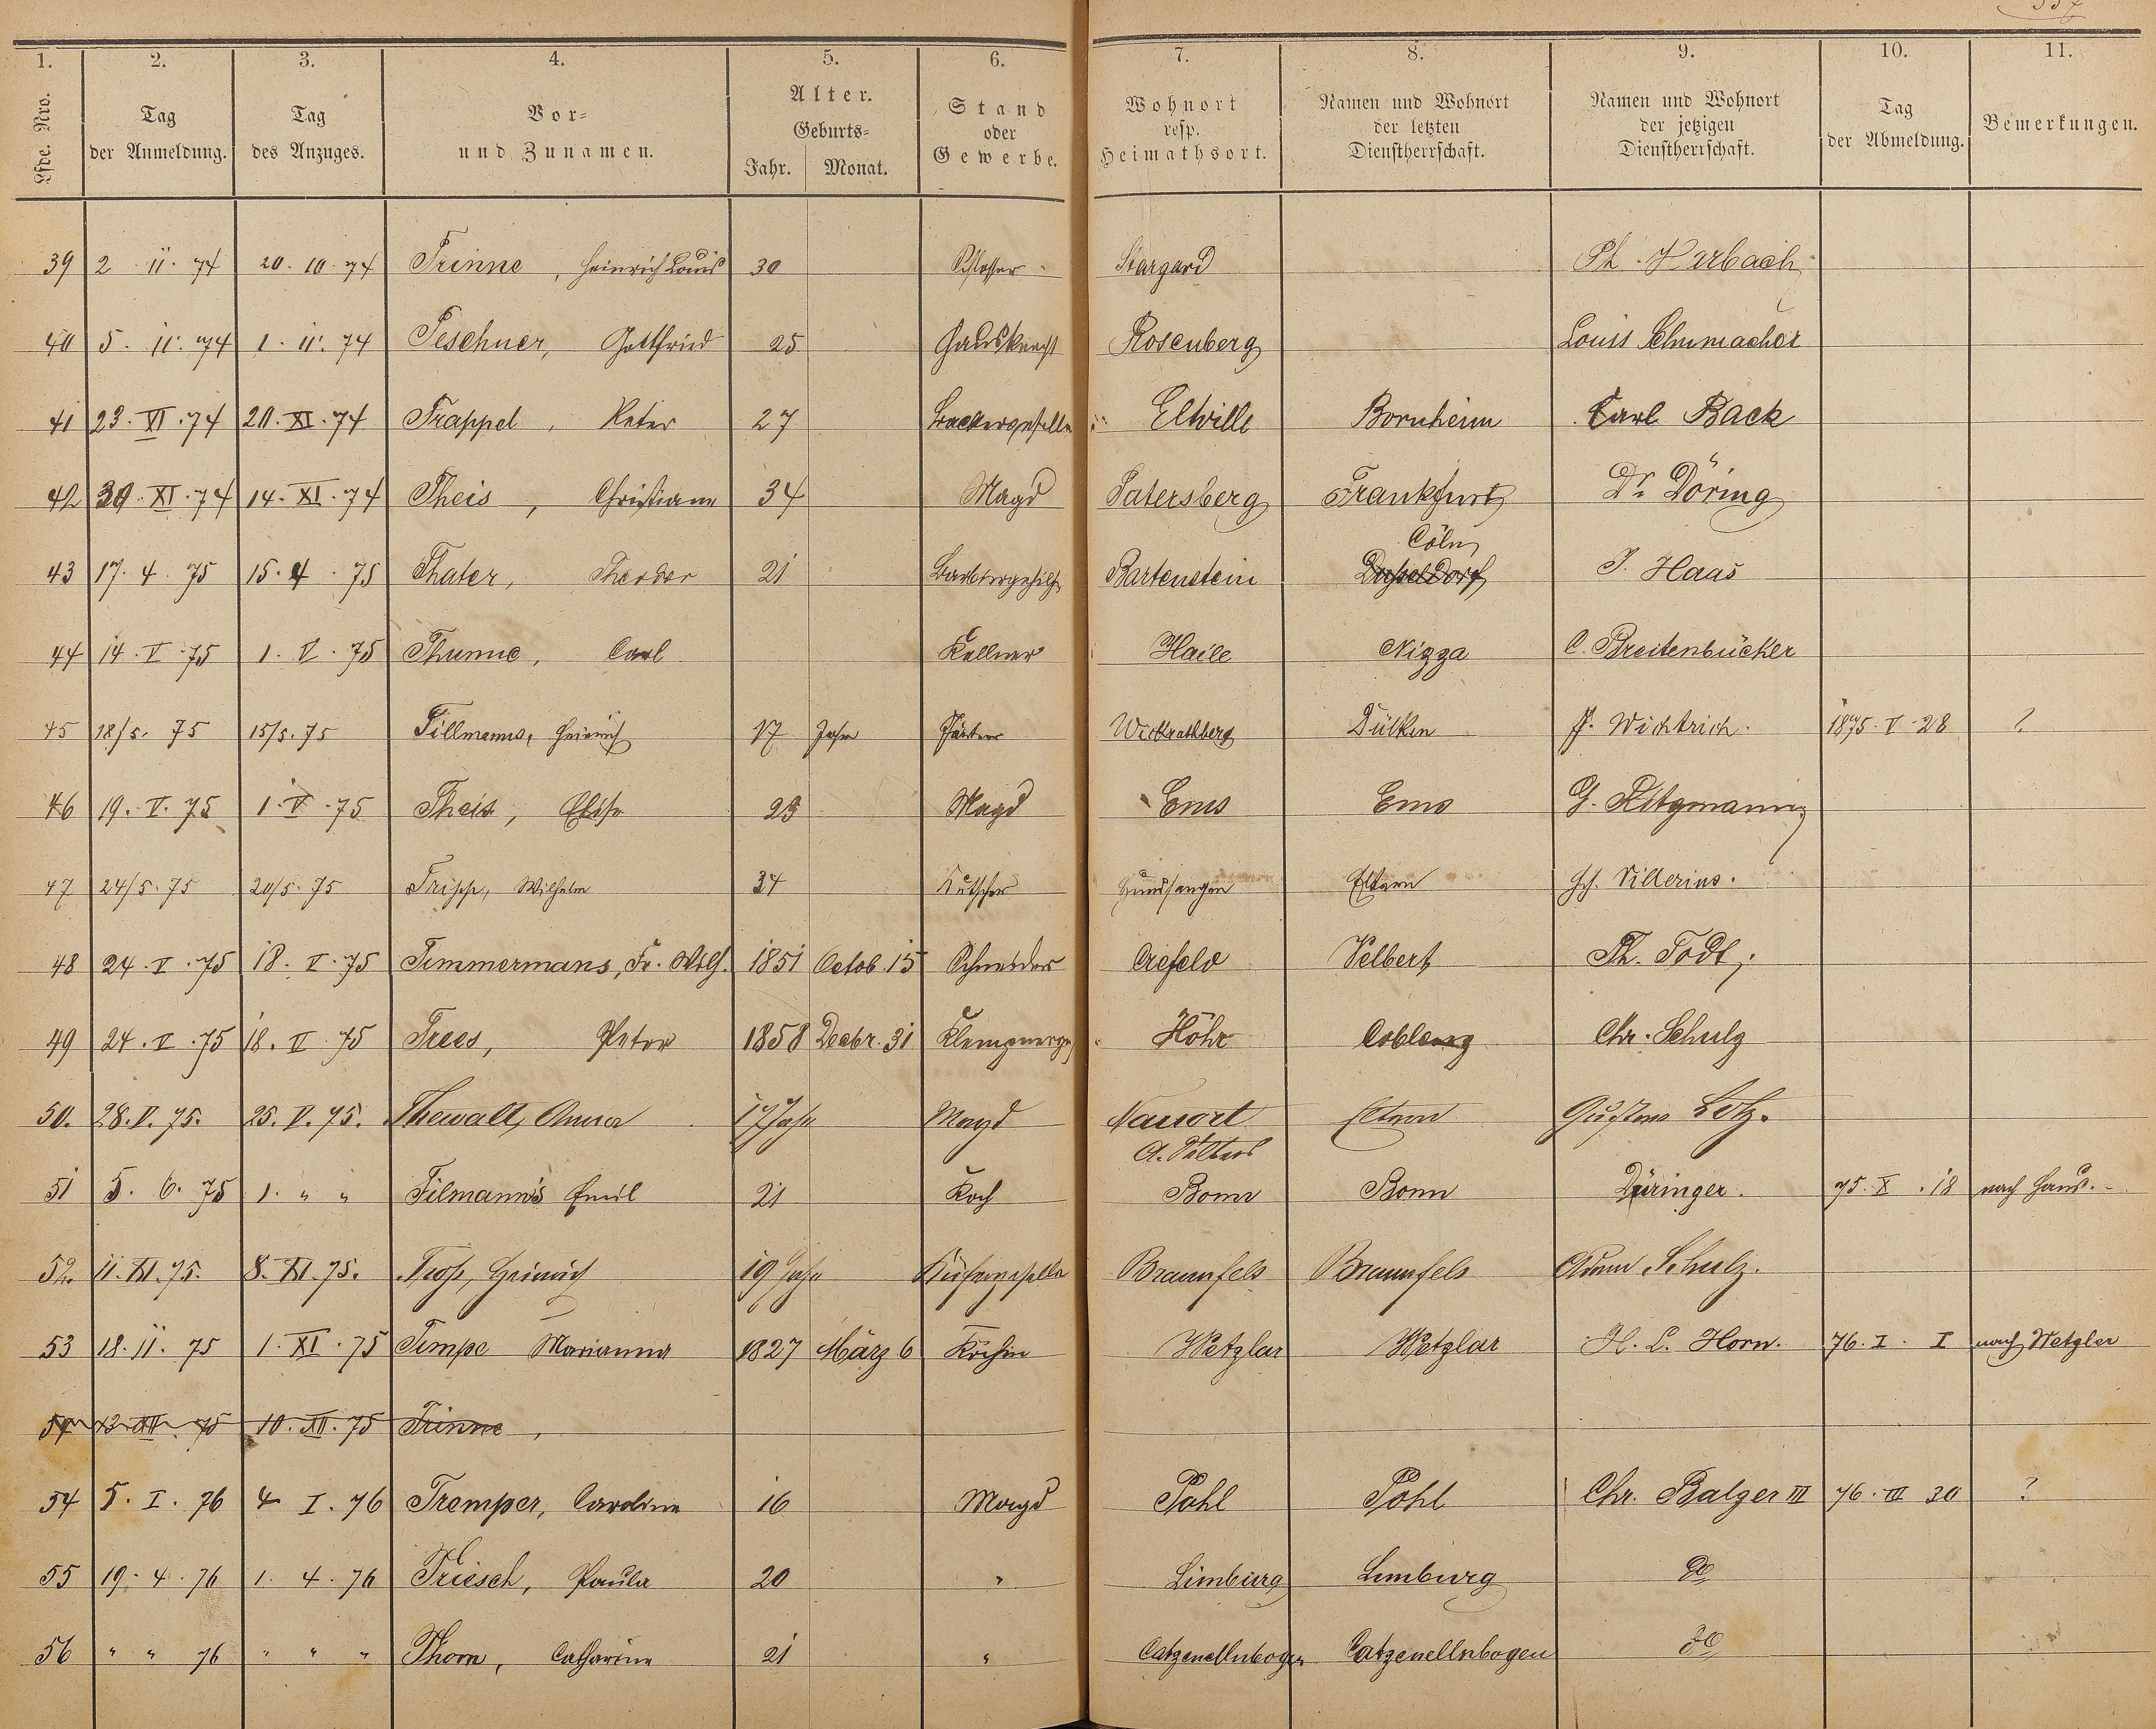 337
1. 2. 3. 4. 5. 6. 7. 8. 9. 10. 11.
Lfde. Nro. Tag der Anmeldung. Tag des Anzuges. Vor- und Zunamen. Alter. Geburts- Jahr. Monat. Stand oder Gewerbe. Wohnort resp. Heimathsort. Namen und Wohnort der letzten Dienstherrschaft. Namen und Wohnort der jetzigen Dienstherrschaft. Tag der Abmeldung. Bemerkungen.
39 2. 11. 74 20. 10. 74 Trinne, Heinrich Louis 30 Schlosser Stargard Ph. Harbach
40 5. 11. 74 1. 11. 74 Teschner, Gottfried 25 Hausknecht Rosenberg Louis Schumacher
41 23. XI. 74 20. XI. 74 Trappel, Peter 27 Baeckergeselle Eltville Bornheim Carl Back
42 30. XI. 74 14. XI. 74 Theis, Christiane 34 Magd Patersberg Frankfurt Dr. Döring
Cöln
43 17. 4. 75 15. 4. 75 Thater, 21 Barbiergehilfe Bartenstein Düsseldorf J. Haas
44 14. V. 75 1. V. 75 Thume, Carl Kellner Nizza C. Breitenbücker
45 18/5. 75 15/5. 75 Tillmanns, Heinrich 17 Jahre Wickrathberg Dülken F. Wichtrich. 1875. V. 28 ?
46 19. V. 75 1. V. 75 Theis, Elise 23 Magd Ems Ems G.
47 24/5. 75 20/5. 75 Tripp, Wilhelm 34 Kutscher Hundsangen Eltern Hch. Vitterius.
48 24. V. 75 18. V. 75 Timmermans, Fr. Wilh. 1851 Octob. 15 Schneider Crefeld Velbert Ph. Todt,
49 24. V. 75 18. V. 75 Trees, Peter 1858 Decbr. 31 Klempnerges. Höhr Coblenz Chr. Schulz
50. 28. V. 75. 25. V. 75. Thewalt, Anna 17 Jahr Magd Nauort Eltern Gustav Lotz.
A. Selters
51 5. 6. 75 1. " " Tilmanns Emil 21 Koch Bonn Bonn Düringer. 75. X. 18 nach Haus.-
52. 11. XI. 75. 8. XI. 75. Tross, Heinrich 19 Jahr Küfergeselle Braunfels Braunfels Adam Schulz.
53 18. 11. 75 1. XI. 75 Timpe Marianna 1827 März 6 Köchin Wetzlar Wetzlar H. L. Horn. 76. I. I nach Wetzlar
54 13. XII. 75 10. XII. 75 Trinne,
54 5. I. 76 4 I. 76 Tremper, Caroline 16 Magd Pohl Pohl Chr. Balzer III 76. III 30 ?
55 19. 4. 76 1. 4. 76 Triesch, Paula 20 " Limburg Limburg do
56 " " 76 " " " Thorn, Catharine 21 " Catzenellnbogen Catzenellnbogen do